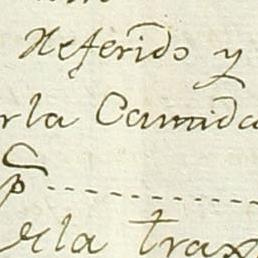 Referido y
rla Camida
p
ela trax